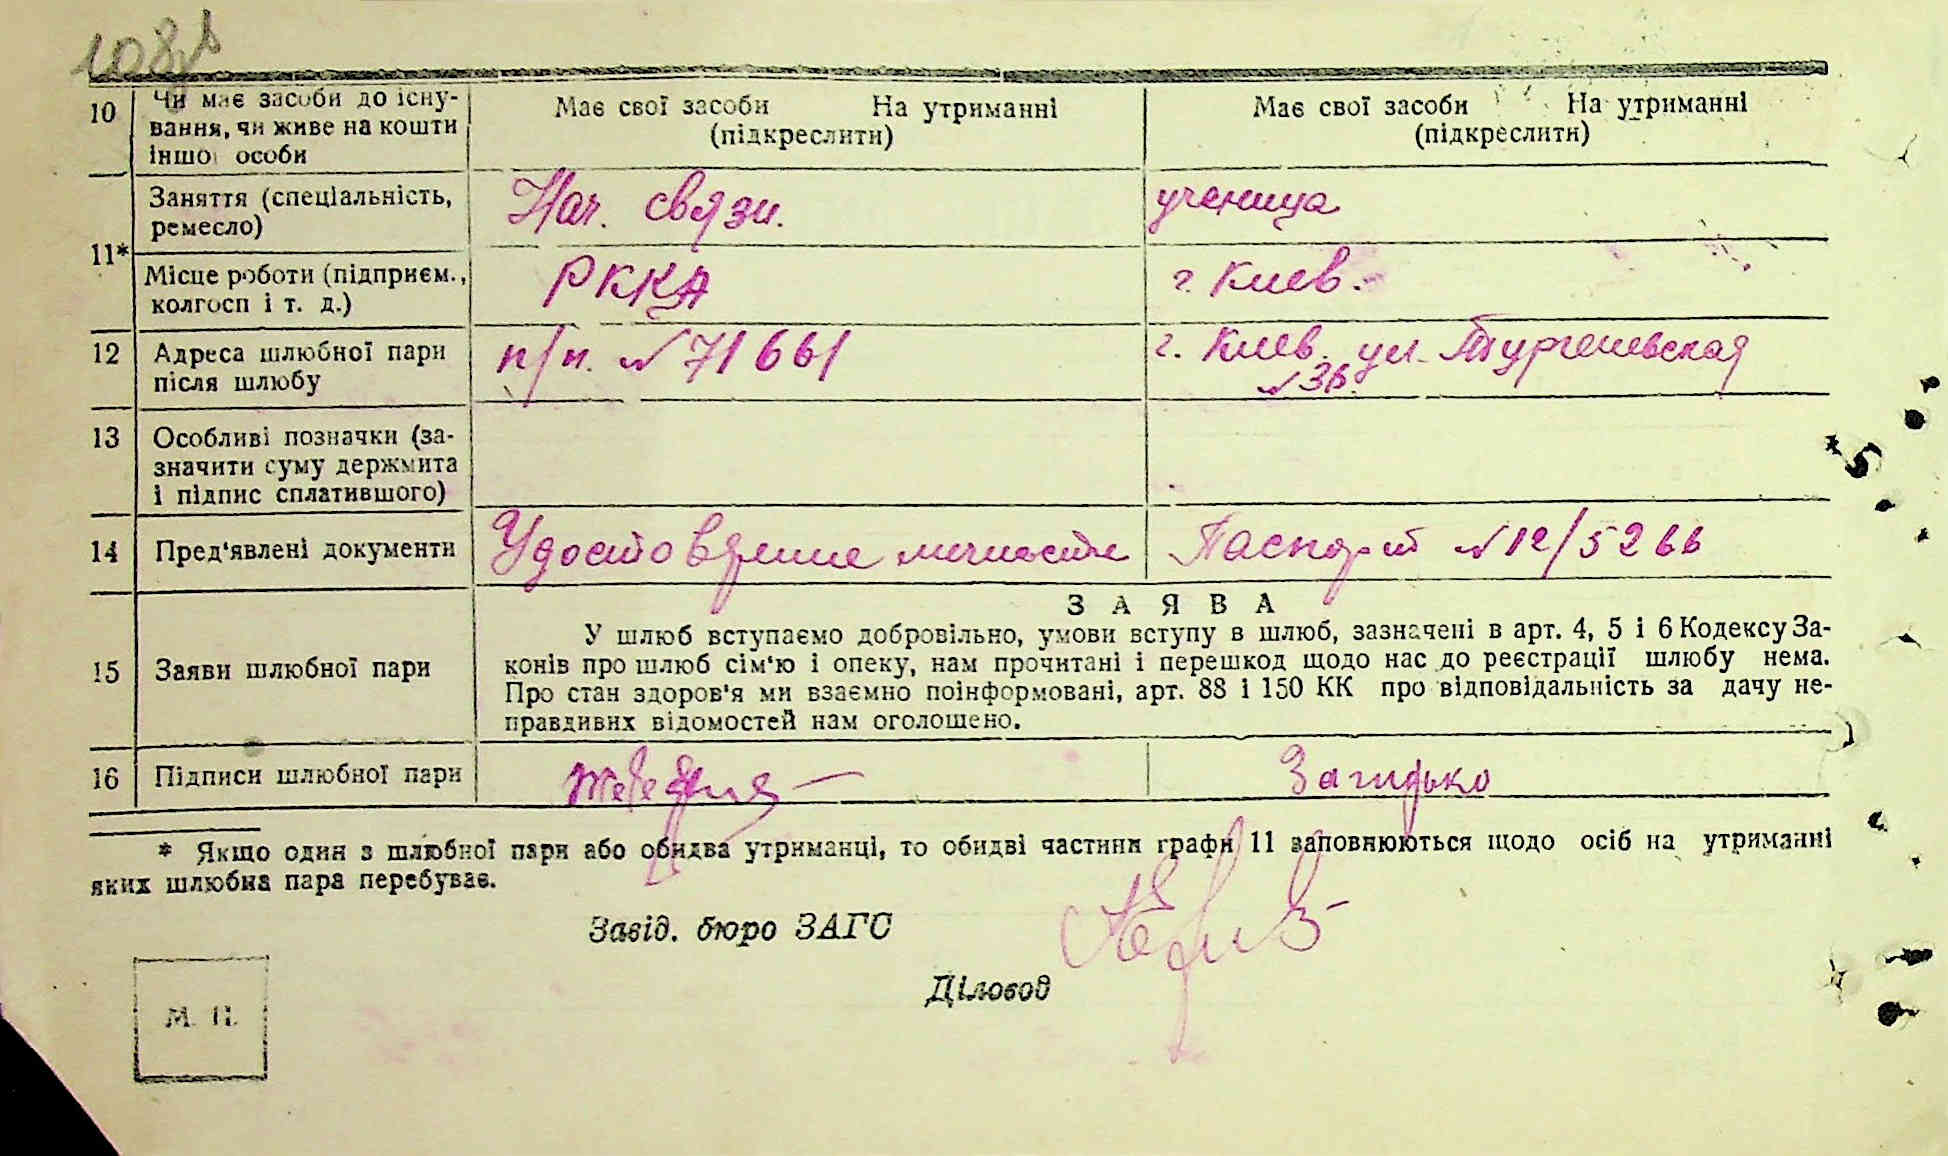 108
10 Чи має засоби до існу- Має свої засоби На утриманні Має свої засоби На утриманні
вання, чи живе на кошти (підкреслити) (підкреслити)
іншої особи
11* Заняття (спеціальність, Нач. связи. ученица
ремесло)
Місце роботи (підприєм., РККА г. Киев.
колгосп і т. д.)
12 Адреса шлюбної пари п/п. № 71661 г. Киев. ул. Тургеневская
після шлюбу № 36.
13 Особливі позначки (за-
значити суму держмита
і підпис сплатившого)
14 Пред'явлені документи Удостоверение личности Паспорт № 12/5266
15 Заяви шлюбної пари
ЗАЯВА
У шлюб вступаємо добровільно, умови вступу в шлюб, зазначені в арт. 4, 5 і 6 Кодексу За-
конів про шлюб сім'ю і опеку, нам прочитані і перешкод щодо нас до реєстрації шлюбу нема.
Про стан здоров'я ми взаємно поінформовані, арт. 88 і 150 КК про відповідальність за дачу не-
правдивих відомостей нам оголошено.
16 Підписи шлюбної пари
* Якщо один з шлюбної пари або обидва утриманці, то обидві частини графи 11 заповнюються щодо осіб на утриманні
яких шлюбна пара перебуває.
Завід. бюро ЗАГС
Діловод
М. П.